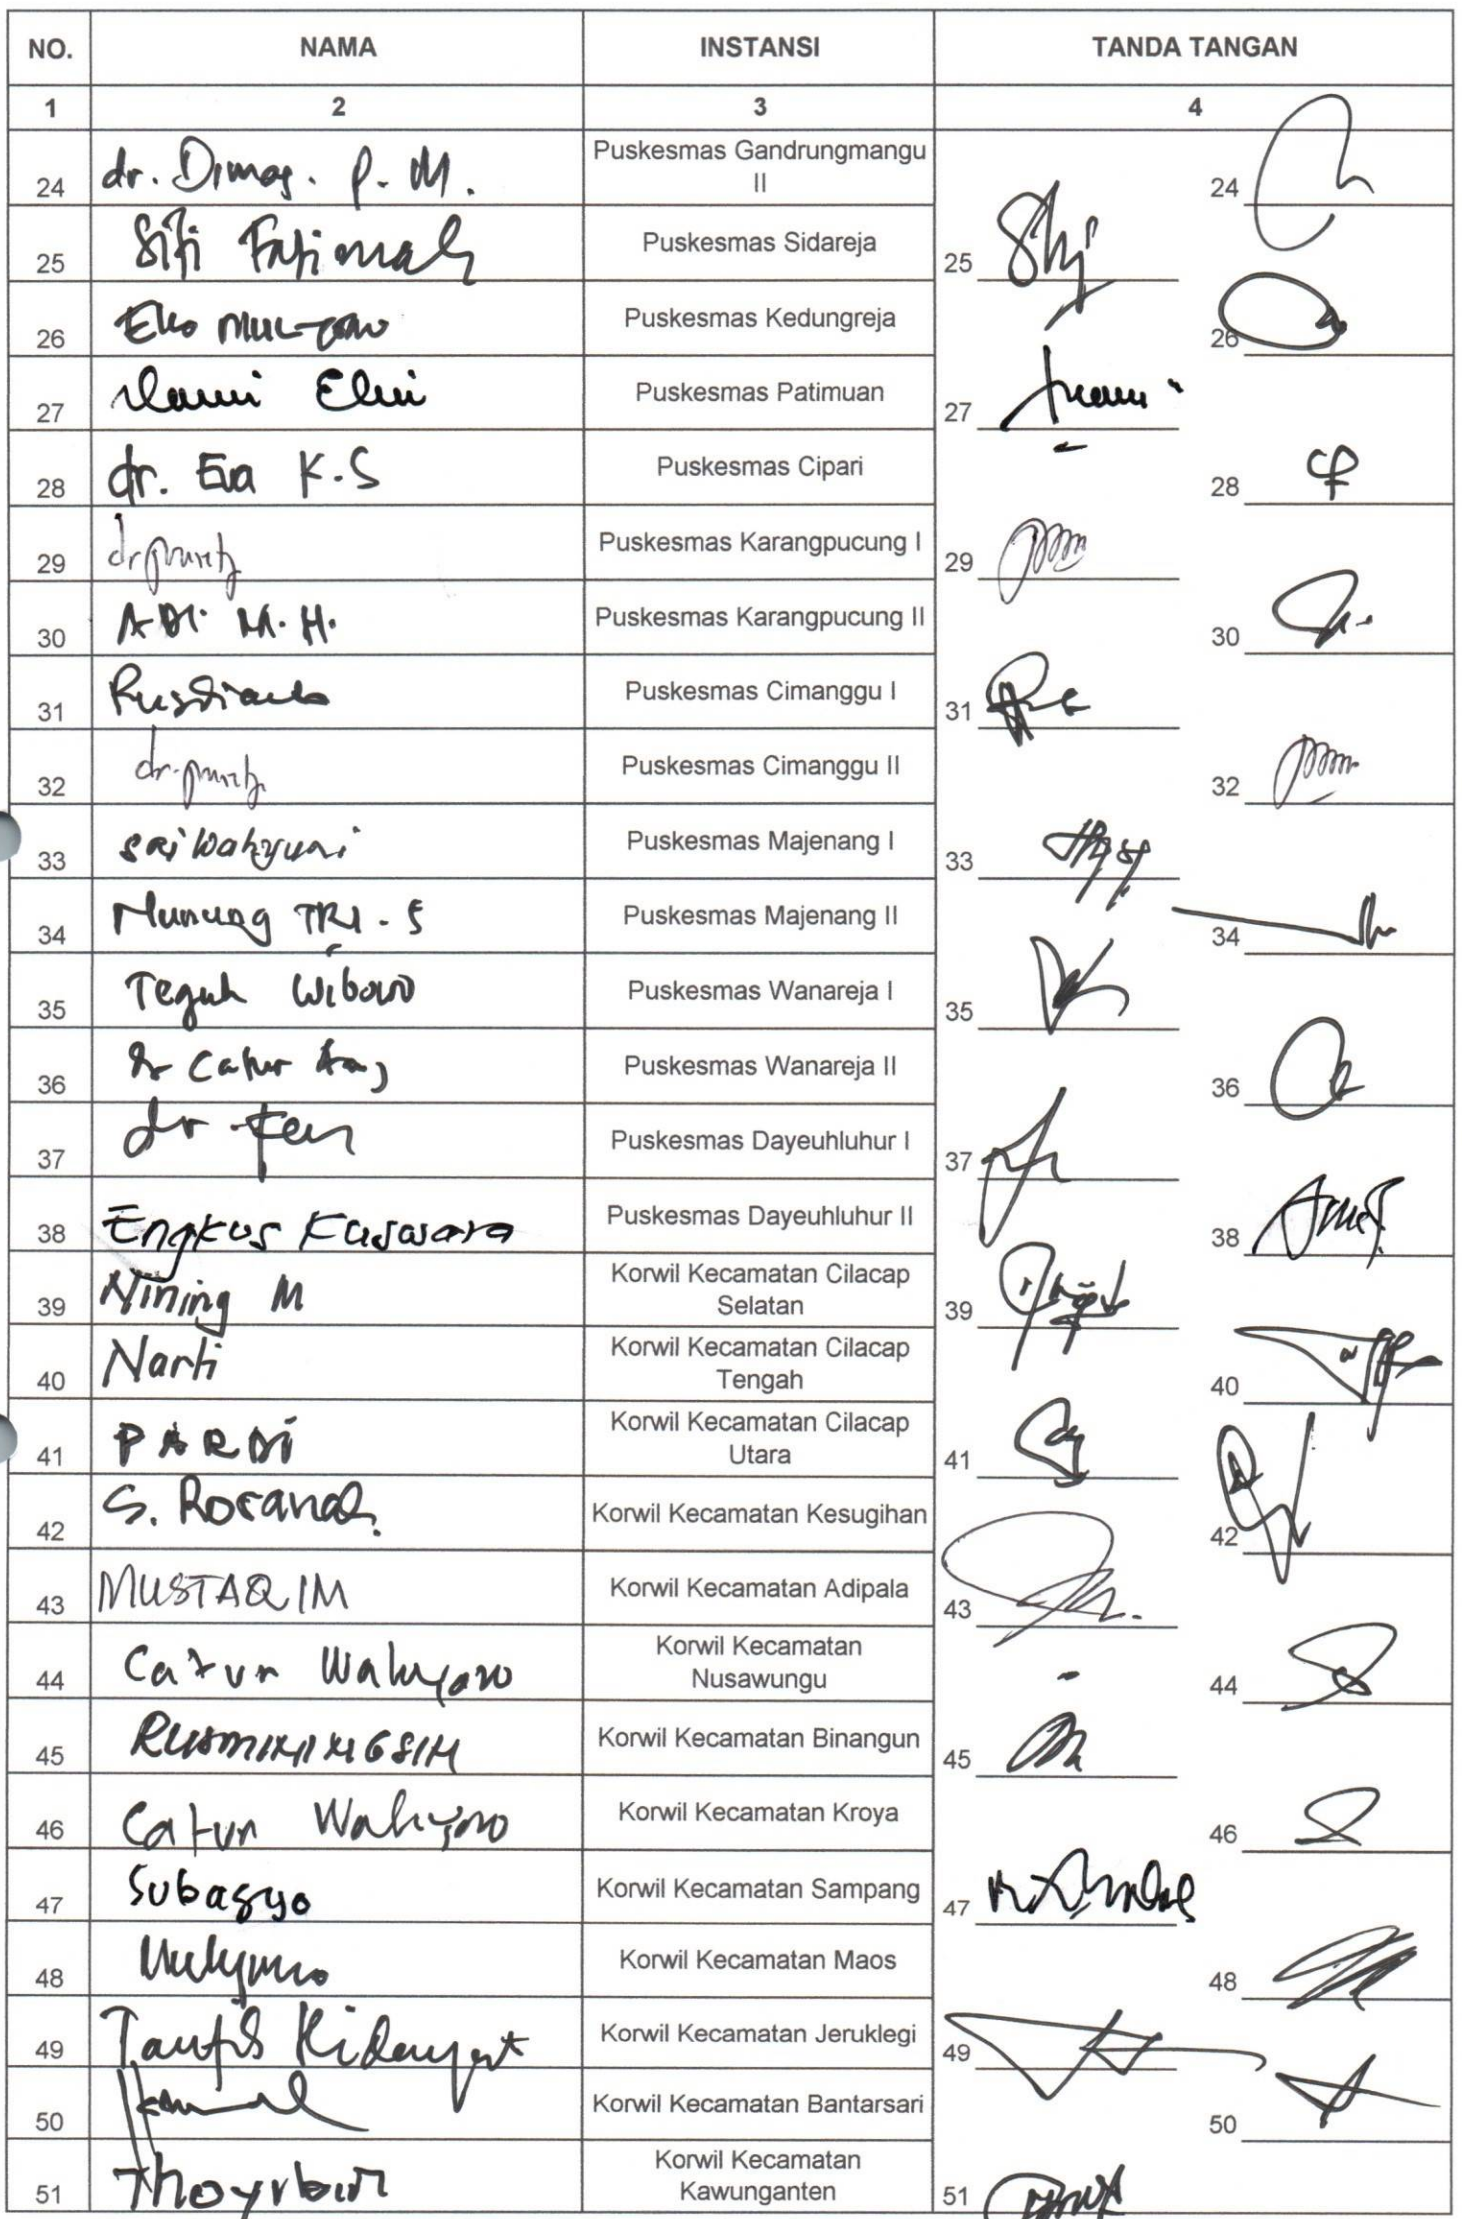 NO. NAMA INSTANSI TANDA TANGAN
1 2 3 4
24 dr. Dimas. P. M. Puskesmas Gandrungmangu II 24
25 Siti Fatimah Puskesmas Sidareja 25
26 Eko Mulyono Puskesmas Kedungreja 26
27 Puskesmas Patimuan 27
28 dr. Eva K.S Puskesmas Cipari 28
29 dr Puskesmas Karangpucung I 29
30 ADI. M.H. Puskesmas Karangpucung II 30
31 Rusdianto Puskesmas Cimanggu I 31
32 dr. Puskesmas Cimanggu II 32
33 Sri Wahyuni Puskesmas Majenang I 33
34 Nunung TRI. S Puskesmas Majenang II 34
35 Teguh Wibowo Puskesmas Wanareja I 35
36 dr Catur Puskesmas Wanareja II 36
37 dr. Puskesmas Dayeuhluhur I 37
38 Engkus Kuswara Puskesmas Dayeuhluhur II 38
39 Nining M Korwil Kecamatan Cilacap Selatan 39
40 Narti Korwil Kecamatan Cilacap Tengah 40
41 PARDI Korwil Kecamatan Cilacap Utara 41
42 S. Rosanah Korwil Kecamatan Kesugihan 42
43 MUSTAQIM Korwil Kecamatan Adipala 43
44 Catur Wahyono Korwil Kecamatan Nusawungu 44
45 RUSMININGSIH Korwil Kecamatan Binangun 45
46 Catur Wahyono Korwil Kecamatan Kroya 46
47 Subagyo Korwil Kecamatan Sampang 47
48 Mulyono Korwil Kecamatan Maos 48
49 Taufik Hidayat Korwil Kecamatan Jeruklegi 49
50 Korwil Kecamatan Bantarsari 50
51 Korwil Kecamatan Kawunganten 51